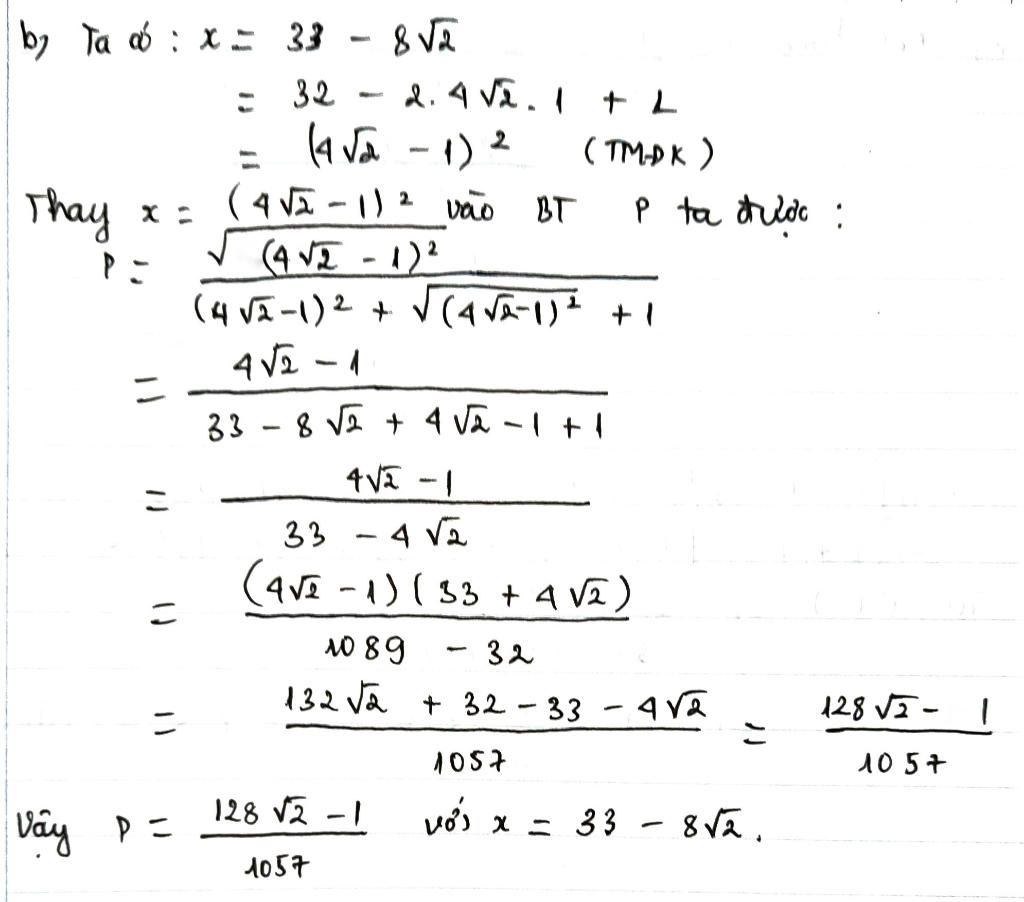 b, Ta có : x = 33 - 8√2
= 32 - 2. 4√2. 1 + 1
= (4√2 - 1)² (TMĐK)
Thay x = (4√2 - 1)² vào BT P ta được :
P = √(4√2 - 1)² / (4√2 - 1)² + √(4√2 - 1)² + 1
= 4√2 - 1 / 33 - 8√2 + 4√2 - 1 + 1
= 4√2 - 1 / 33 - 4√2
= (4√2 - 1)(33 + 4√2) / 1089 - 32
= 132√2 + 32 - 33 - 4√2 / 1057 = 128√2 - 1 / 1057
Vậy P = 128√2 - 1 / 1057 với x = 33 - 8√2.